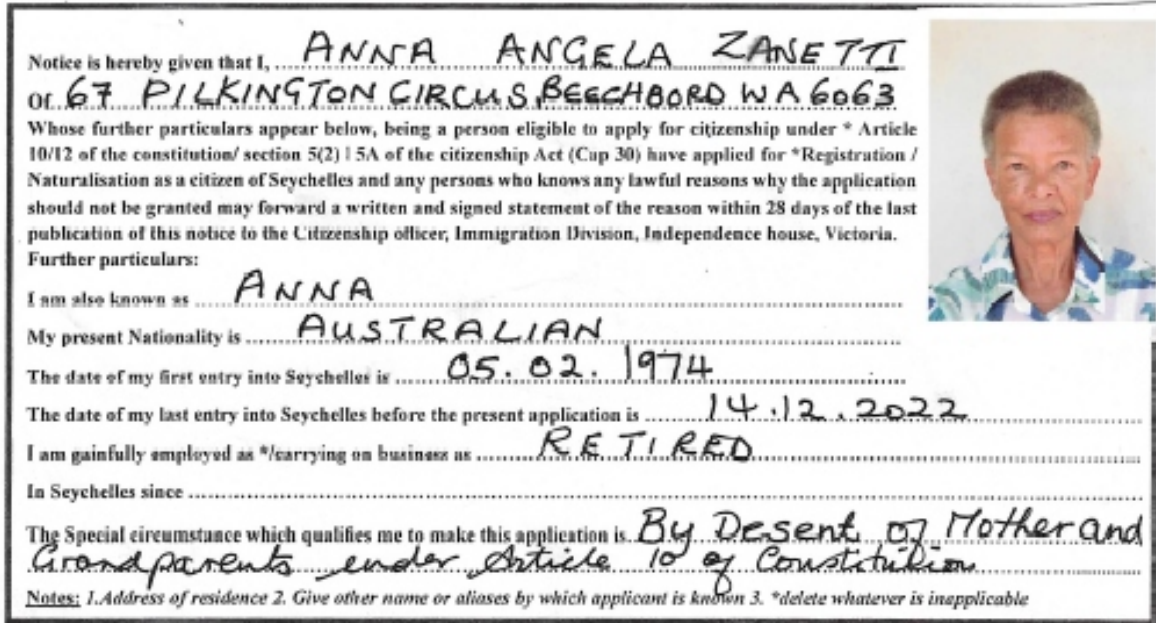 Notice is hereby given that I, ANNA ANGELA ZANETTI
Of 67 PILKINGTON CIRCUS, BEECHBORD WA 6063
Whose further particulars appear below, being a person eligible to apply for citizenship under * Article
10/12 of the constitution/ section 5(2) | 5A of the citizenship Act (Cap 30) have applied for *Registration /
Naturalisation as a citizen of Seychelles and any persons who knows any lawful reasons why the application
should not be granted may forward a written and signed statement of the reason within 28 days of the last
publication of this notice to the Citizenship officer, Immigration Division, Independence house, Victoria.
Further particulars:
I am also known as ANNA
My present Nationality is AUSTRALIAN
The date of my first entry into Seychelles is 05.02.1974
The date of my last entry into Seychelles before the present application is 14.12.2022
I am gainfully employed as */carrying on business as RETIRED
In Seychelles since
The Special circumstance which qualifies me to make this application is By Desent of Mother and
Grandparents under Article 10 of Constitution
Notes: 1.Address of residence 2. Give other name or aliases by which applicant is known 3. *delete whatever is inapplicable